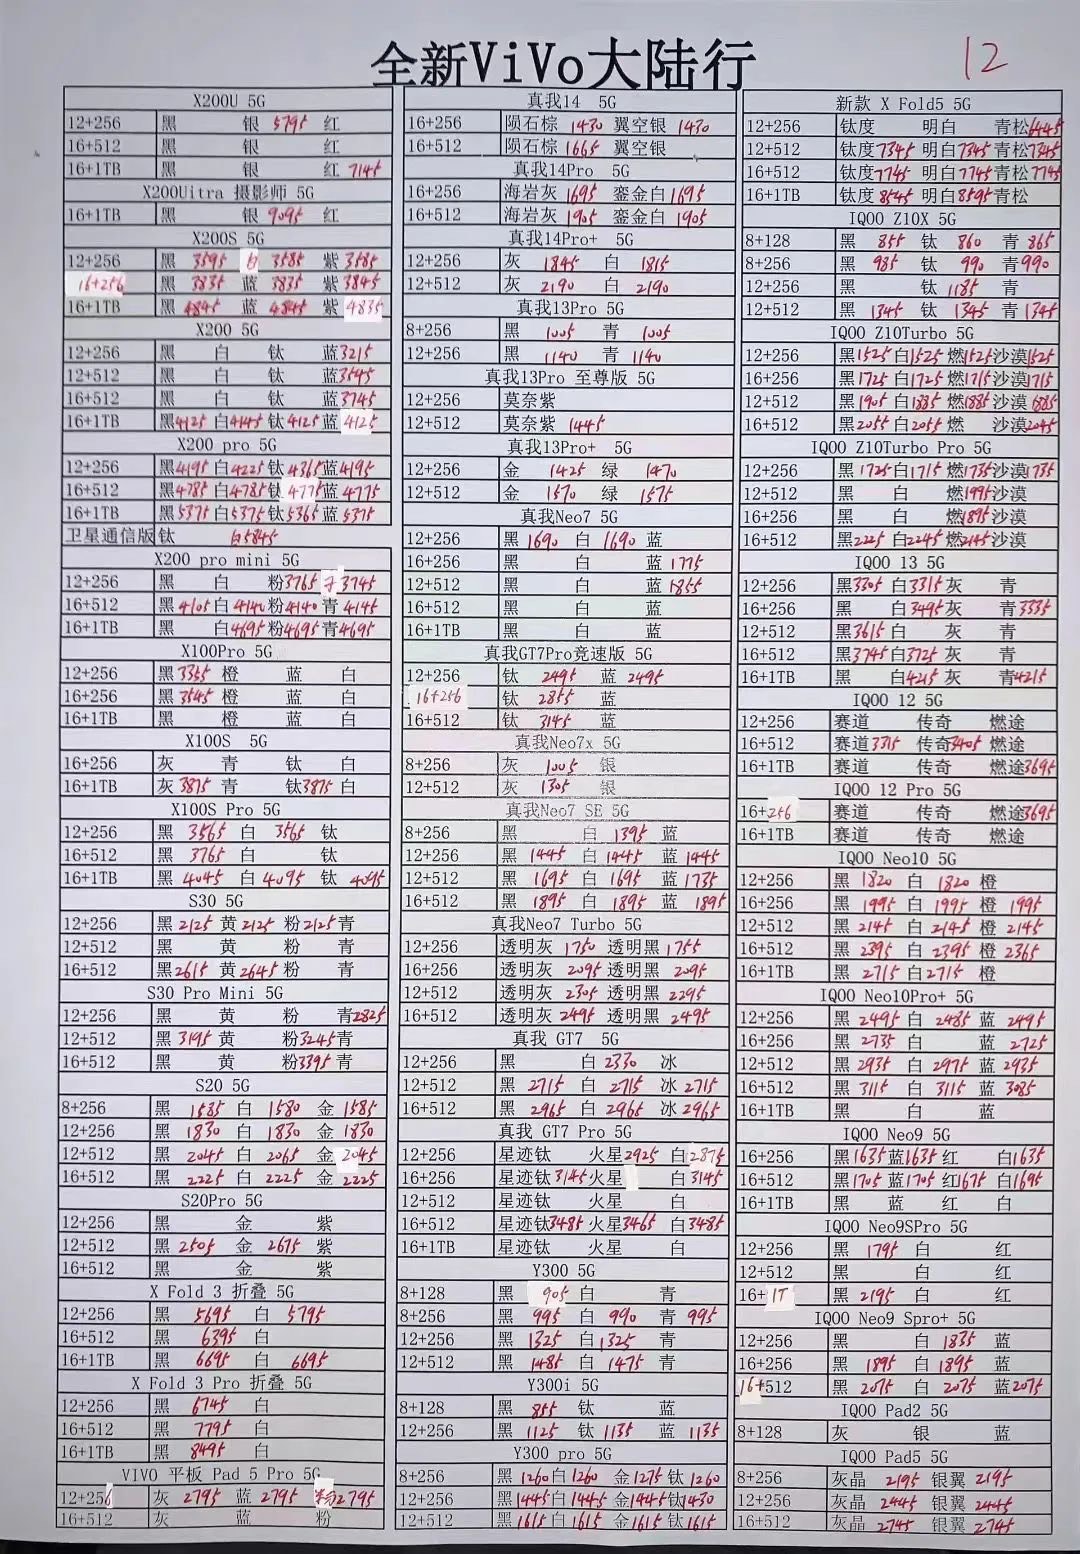 全新ViVo大陆行
12
X200U 5G
12+256 黑 银 5795 红
16+512 黑 银 红
16+1TB 黑 银 红 7145
X200Uitra 摄影师 5G
16+1TB 黑 银 9095 红
X200S 5G
12+256 黑 3595 白 3585 紫 3585
16+256 黑 3835 蓝 3835 紫 3845
16+1TB 黑 4845 蓝 4845 紫 4835
X200 5G
12+256 黑 白 钛 蓝 3215
12+512 黑 白 钛 蓝 3545
16+512 黑 白 钛 蓝 3745
16+1TB 黑 4125 白 4145 钛 4125 蓝 4125
X200 pro 5G
12+256 黑 4195 白 4225 钛 4365 蓝 4195
16+512 黑 4785 白 4785 钛 4775 蓝 4775
16+1TB 黑 5375 白 5375 钛 5365 蓝 5375
卫星通信版 钛 白 5845
X200 pro mini 5G
12+256 黑 白 粉 3765 3745
16+512 黑 4105 白 4140 粉 4140 青 4145
16+1TB 黑 白 4695 粉 4695 青 4695
X100Pro 5G
12+256 黑 3355 橙 蓝 白
16+256 黑 3545 橙 蓝 白
16+1TB 黑 橙 蓝 白
X100S 5G
16+256 灰 青 钛 白
16+1TB 灰 3875 青 钛 3875 白
X100S Pro 5G
12+256 黑 3565 白 3565 钛
16+512 黑 3765 白 钛
16+1TB 黑 4045 白 4095 钛 4095
S30 5G
12+256 黑 2125 黄 2125 粉 2125 青
12+512 黑 黄 粉 青
16+512 黑 2615 黄 2645 粉 青
S30 Pro Mini 5G
12+256 黑 黄 粉 青 2825
12+512 黑 3195 黄 粉 3245 青
16+512 黑 黄 粉 3395 青
S20 5G
8+256 黑 1585 白 1580 金 1585
12+256 黑 1830 白 1830 金 1830
12+512 黑 2045 白 2065 金 2045
16+512 黑 2225 白 2225 金 2225
S20Pro 5G
12+256 黑 金 紫
12+512 黑 2505 金 2675 紫
16+512 黑 金 紫
X Fold 3 折叠 5G
12+256 黑 5695 白 5795
16+512 黑 6395 白
16+1TB 黑 6695 白 6695
X Fold 3 Pro 折叠 5G
12+256 黑 6745 白
16+512 黑 7795 白
16+1TB 黑 8495 白
VIVO 平板 Pad 5 Pro 5G
12+256 灰 2795 蓝 2795 粉 2795
16+512 灰 蓝 粉
真我14 5G
16+256 陨石棕 1430 翼空银 1430
16+512 陨石棕 1665 翼空银
真我14Pro 5G
16+256 海岩灰 1695 銮金白 1695
16+512 海岩灰 1905 銮金白 1905
真我14Pro+ 5G
12+256 灰 1845 白 1815
12+512 灰 2190 白 2190
真我13Pro 5G
8+256 黑 1005 青 1005
12+256 黑 1140 青 1140
真我13Pro 至尊版 5G
12+256 莫奈紫
12+512 莫奈紫 1445
真我13Pro+ 5G
12+256 金 1425 绿 1470
12+512 金 1570 绿 1575
真我Neo7 5G
12+256 黑 1690 白 1690 蓝
16+256 黑 白 蓝 1775
12+512 黑 白 蓝 1855
16+512 黑 白 蓝
16+1TB 黑 白 蓝
真我GT7Pro竞速版 5G
12+256 钛 2495 蓝 2495
16+256 钛 2855 蓝
16+512 钛 3145 蓝
真我Neo7x 5G
8+256 灰 1005 银
12+512 灰 1305 银
真我Neo7 SE 5G
8+256 黑 白 1395 蓝
12+256 黑 1445 白 1445 蓝 1445
12+512 黑 1695 白 1695 蓝 1735
16+512 黑 1895 白 1895 蓝 1895
真我Neo7 Turbo 5G
12+256 透明灰 1750 透明黑 1755
16+256 透明灰 2095 透明黑 2095
12+512 透明灰 2305 透明黑 2295
16+512 透明灰 2495 透明黑 2495
真我 GT7 5G
12+256 黑 白 2330 冰
12+512 黑 2715 白 2715 冰 2715
16+512 黑 2965 白 2965 冰 2965
真我 GT7 Pro 5G
12+256 星迹钛 火星 2925 白 2875
16+256 星迹钛 3145 火星 白 3145
12+512 星迹钛 火星 白
16+512 星迹钛 3485 火星 3465 白 3485
16+1TB 星迹钛 火星 白
Y300 5G
8+128 黑 905 白 青
8+256 黑 995 白 990 青 995
12+256 黑 1325 白 1325 青
12+512 黑 1485 白 1475 青
Y300i 5G
8+128 黑 855 钛 蓝
12+256 黑 1125 钛 1135 蓝 1135
Y300 pro 5G
8+256 黑 1260 白 1260 金 1275 钛 1260
12+256 黑 1445 白 1445 金 1445 钛 1430
12+512 黑 1615 白 1615 金 1615 钛 1615
新款 X Fold5 5G
12+256 钛度 明白 青松 6445
12+512 钛度 7345 明白 7345 青松 7345
16+512 钛度 7745 明白 7745 青松 7745
16+1TB 钛度 8545 明白 8595 青松
IQOO Z10X 5G
8+128 黑 855 钛 860 青 865
8+256 黑 985 钛 990 青 990
12+256 黑 钛 1185 青
12+512 黑 1345 钛 1345 青 1345
IQOO Z10Turbo 5G
12+256 黑 1525 白 1525 燃 1525 沙漠 1525
16+256 黑 1725 白 1725 燃 1715 沙漠 1715
12+512 黑 1905 白 1885 燃 1885 沙漠 1885
16+512 黑 2055 白 2055 燃 沙漠 2045
IQOO Z10Turbo Pro 5G
12+256 黑 1725 白 1715 燃 1735 沙漠 1735
12+512 黑 白 燃 1995 沙漠
16+256 黑 白 燃 1895 沙漠
16+512 黑 2225 白 2245 燃 2145 沙漠
IQOO 13 5G
12+256 黑 3305 白 3315 灰 青
16+256 黑 白 3495 灰 青 3335
12+512 黑 3615 白 灰 青
16+512 黑 3745 白 3725 灰 青
16+1TB 黑 白 4215 灰 青 4215
IQOO 12 5G
12+256 赛道 传奇 燃途
16+512 赛道 3315 传奇 3405 燃途
16+1TB 赛道 传奇 燃途 3695
IQOO 12 Pro 5G
16+256 赛道 传奇 燃途 3695
16+1TB 赛道 传奇 燃途
IQOO Neo10 5G
12+256 黑 1820 白 1820 橙
16+256 黑 1995 白 1995 橙 1995
12+512 黑 2145 白 2145 橙 2145
16+512 黑 2395 白 2395 橙 2365
16+1TB 黑 2715 白 2715 橙
IQOO Neo10Pro+ 5G
12+256 黑 2495 白 2485 蓝 2495
16+256 黑 2735 白 蓝 2725
12+512 黑 2935 白 2975 蓝 2935
16+512 黑 3115 白 3115 蓝 3085
16+1TB 黑 白 蓝
IQOO Neo9 5G
16+256 黑 1635 蓝 1635 红 白 1635
16+512 黑 1705 蓝 1705 红 1675 白 1695
16+1TB 黑 蓝 红 白
IQOO Neo9SPro 5G
12+256 黑 1795 白 红
12+512 黑 白 红
16+1T 黑 2195 白 红
IQOO Neo9 Spro+ 5G
12+256 黑 白 1835 蓝
16+256 黑 1895 白 1895 蓝
16+512 黑 2075 白 2075 蓝 2075
IQOO Pad2 5G
8+128 灰 银 蓝
IQOO Pad5 5G
8+256 灰晶 2195 银翼 2195
12+256 灰晶 2445 银翼 2445
16+512 灰晶 2745 银翼 2745